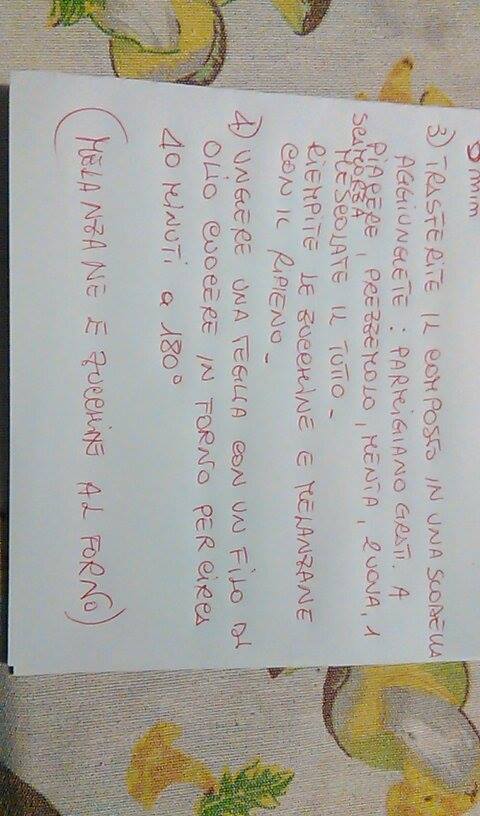 0 mim
3) TRASFERITE IL COMPOSTO IN UNA SCODELLA
AGGIUNGETE: PARMIGIANO GRAT. A
PIACERE, PREZZEMOLO, MENTA, 2 UOVA, 1
SCAMORZA, MESCOLATE IL TUTTO-
RIEMPITE LE ZUCCHINE E MELANZANE
CON IL RIPIENO-
4) UNGERE UNA TEGLIA CON UN FILO DI
OLIO CUOCERE IN FORNO PER CIRCA
40 MINUTI a 180°
(MELANZANE E ZUCCHINE AL FORNO)